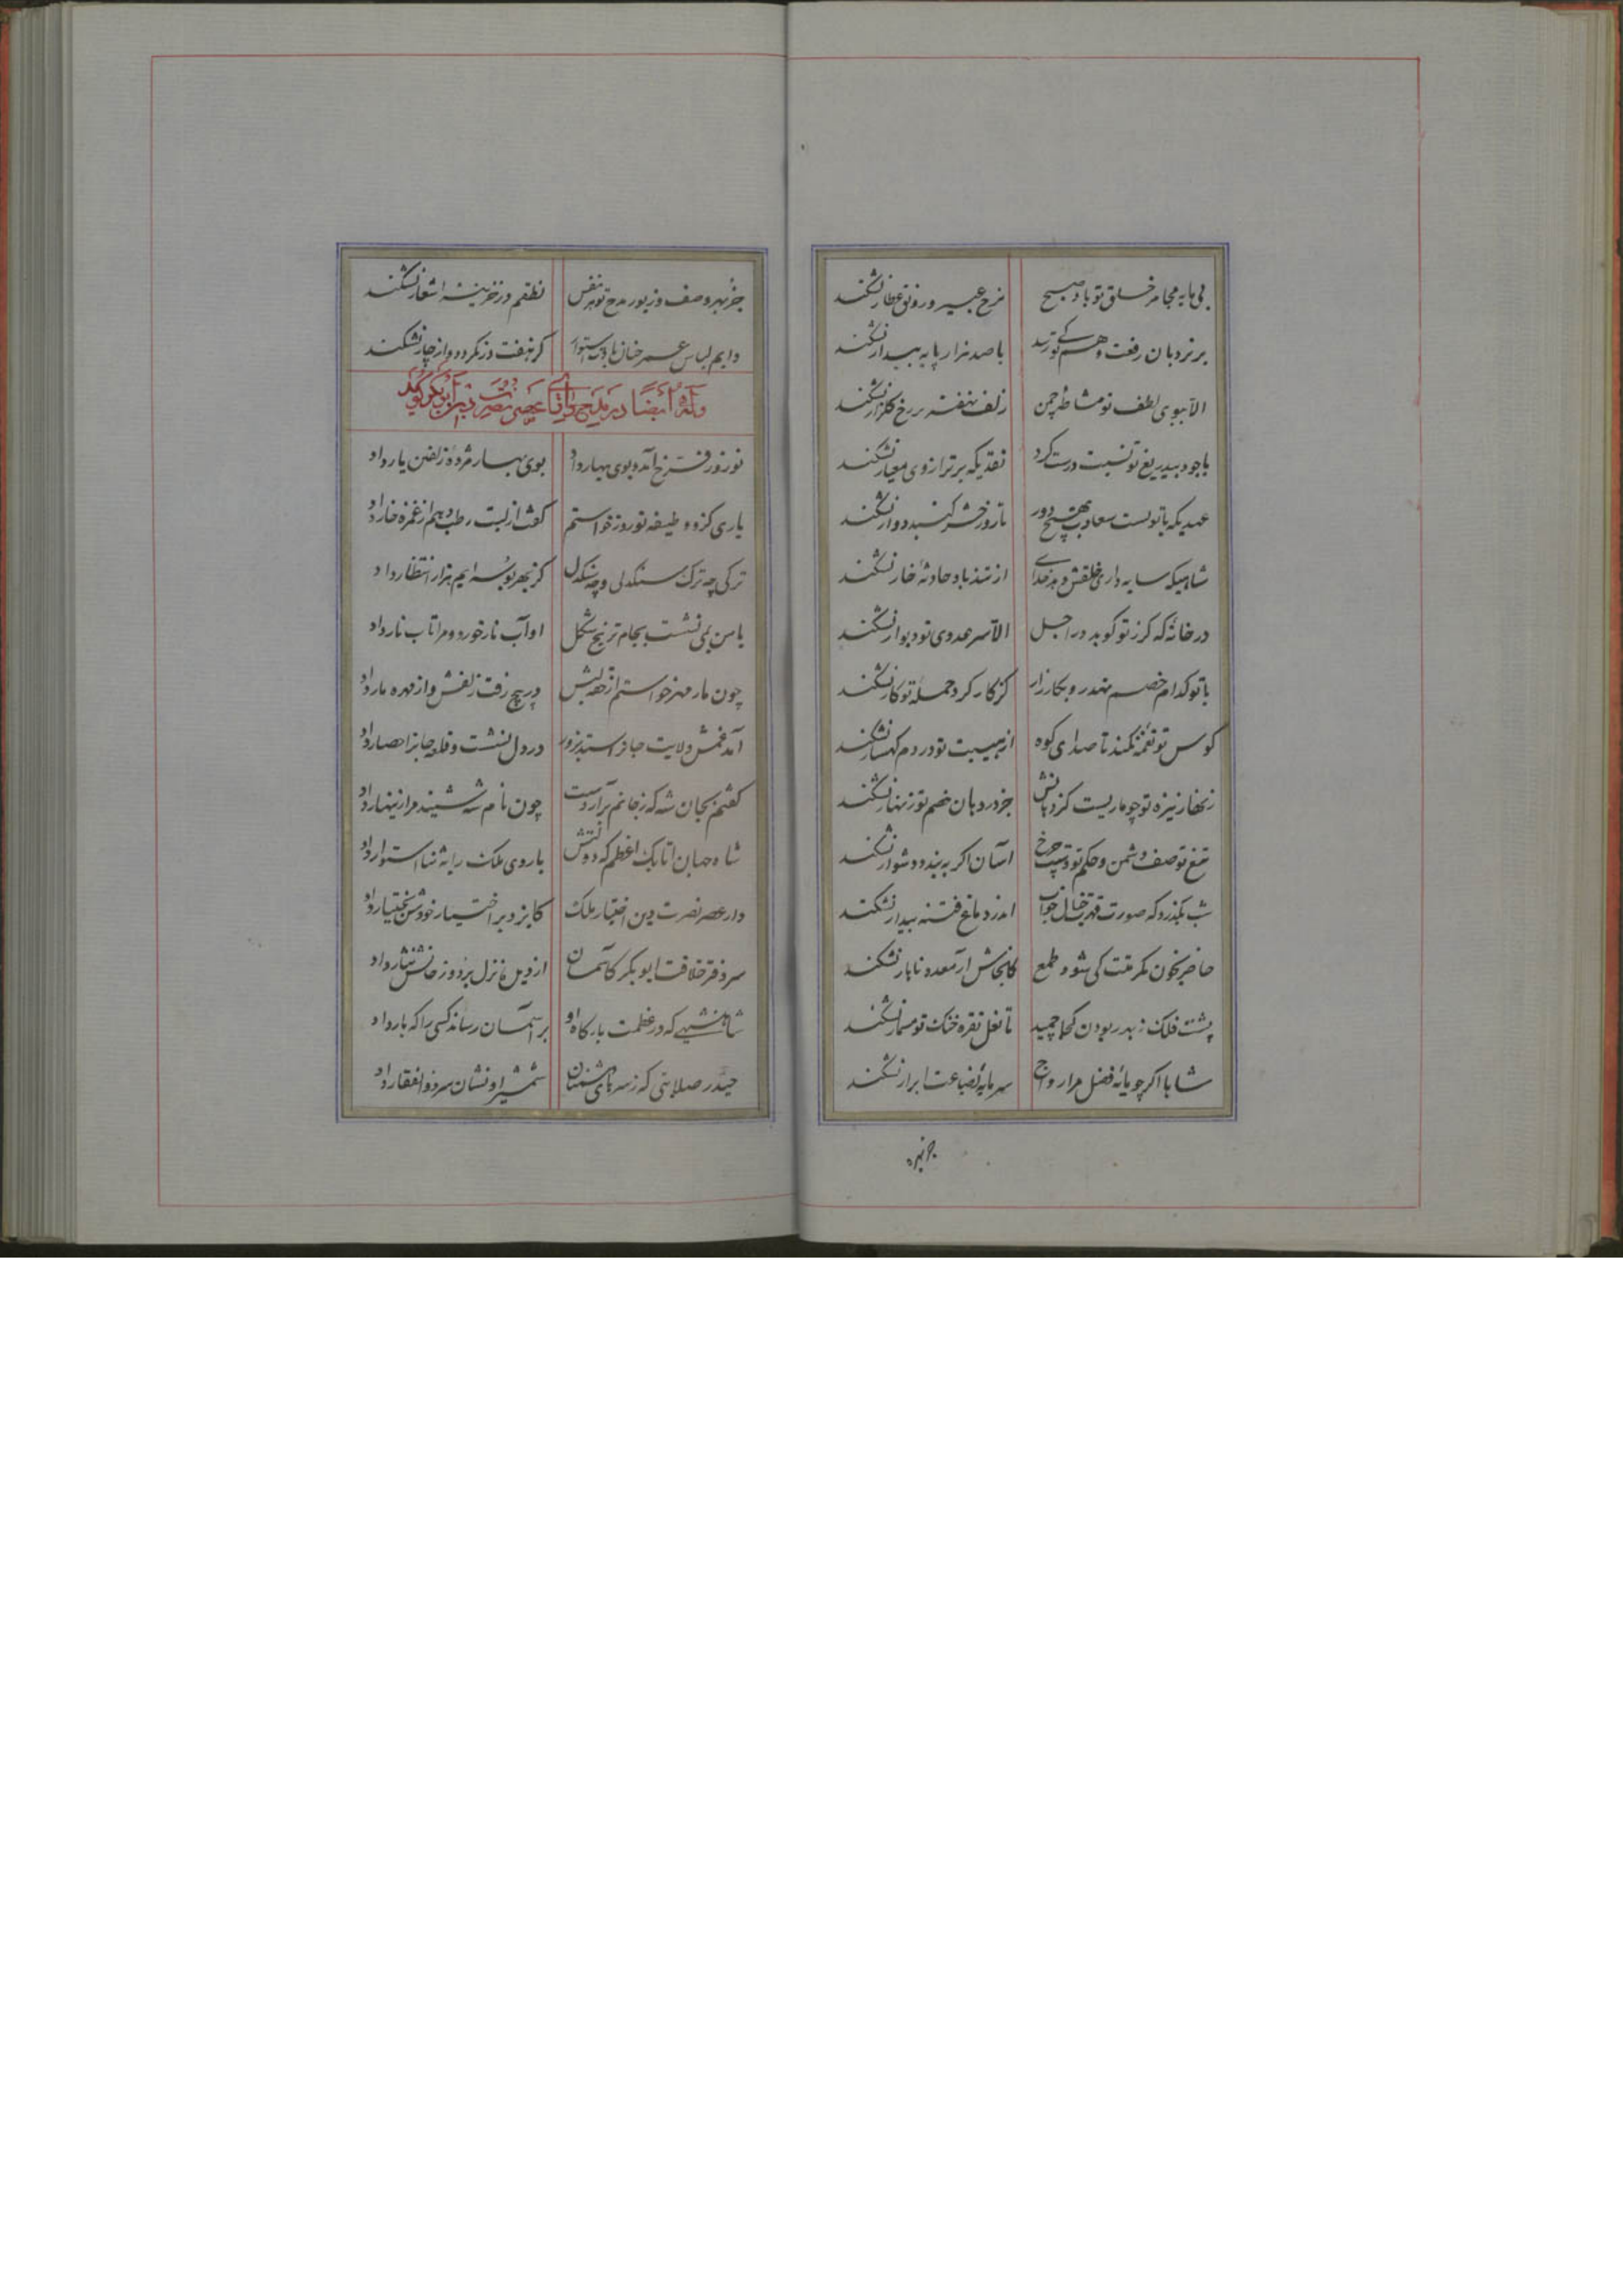 بی مایه مجامر خلق تو باد صبح نرخ عبیر و رونق عطار نشکند
بر نردبان رفعت تو وهم کی رسد با صد هزار پایه پدیدار نشکند
الا ببوی لطف تو مشاطه چمن زلف بنفشه بر رخ گلزار نشکند
با جود بیدریغ تو نسبت درست کرد نقدیکه بر ترازوی معیار نشکند
عهدیکه با تو بست سعادت بهیچ دور تا روز حشر گنبد دوار نشکند
شاهیکه سایه داری خلقش دهد خدای از تندباد حادثه خار نشکند
در خانه که گرز تو کوبد در اجل الا سر عدوی تو دیوار نشکند
با تو کدام خصم نهد رو بکارزار کز کارکرد حمله تو کار نشکند
کوس تو نغمه نکند تا صدای کوه از هیبت تو در دم کهسار نشکند
زنهار نیزه تو چو ماریست کز دهانش جز در دهان خصم تو زنهار نشکند
تیغ تو صف دشمن و حکم تو دست چرخ آسان اگر به بندد دشوار نشکند
شب نگذرد که صورت قهرت خیال خواب اندر دماغ فتنه بیدار نشکند
حاضر نخون مکرمتت کی شود طمع کانجاش آز معده ناهار نشکند
پشت فلک ز بدر بودن کجا چمید تا نعل نقره خنک تو مسمار نشکند
شاها اگر چو مایه فضل مرا رواج سرمایه بضاعت ابرار نشکند
جز بهر
جز بهر وصف و زیور مدح تو هر نفس نطقم در خزینه اشعار نشکند
دایم لباس عمر چنان بادت استوار کز هفت در نگردد و از چار نشکند
وله ایضا در مدیح اتابک نصرت دین ابوبکر گوید
نوروز فرخ آمد و بوی بهار داد بوی بهار مژده زلفین یار داد
یاری کزو وظیفه نوروز خواستم گفت از لبت رطب دهم از غمزه خار داد
ترکی چه ترک سنگدلی و چه سنگدل کز بهر بوسه ایم هزار انتظار داد
با من نمی نشست بجام ترنج شکل او آب نار خورد و مرا تاب نار داد
چون مار مهره خواستم از حقه لبش در پیچ رفت زلفش و از مهره مار داد
آمد غمش ولایت جان بستد بزور در دل نشست و قلعه جانرا حصار داد
گفتم بجان شه که ز جانم برآر دست چون نام شه شنید مرا زینهار داد
شاه جهان اتابک اعظم که دولتش باروی ملک را به ثنا استوار داد
دار عصر نصرت دین اختیار ملک کایزد بر اختیار خودش بختیار داد
سر دفتر خلافت ابوبکر کاسمان از دیر نازل بر در جانش نثار داد
شاهنشهی که در عظمت بارگاه او بر آسمان رساند کسی را که بار داد
حیدر صلابتی که ز سرهای دشمنان شمشیر او نشان سر ذوالفقار داد